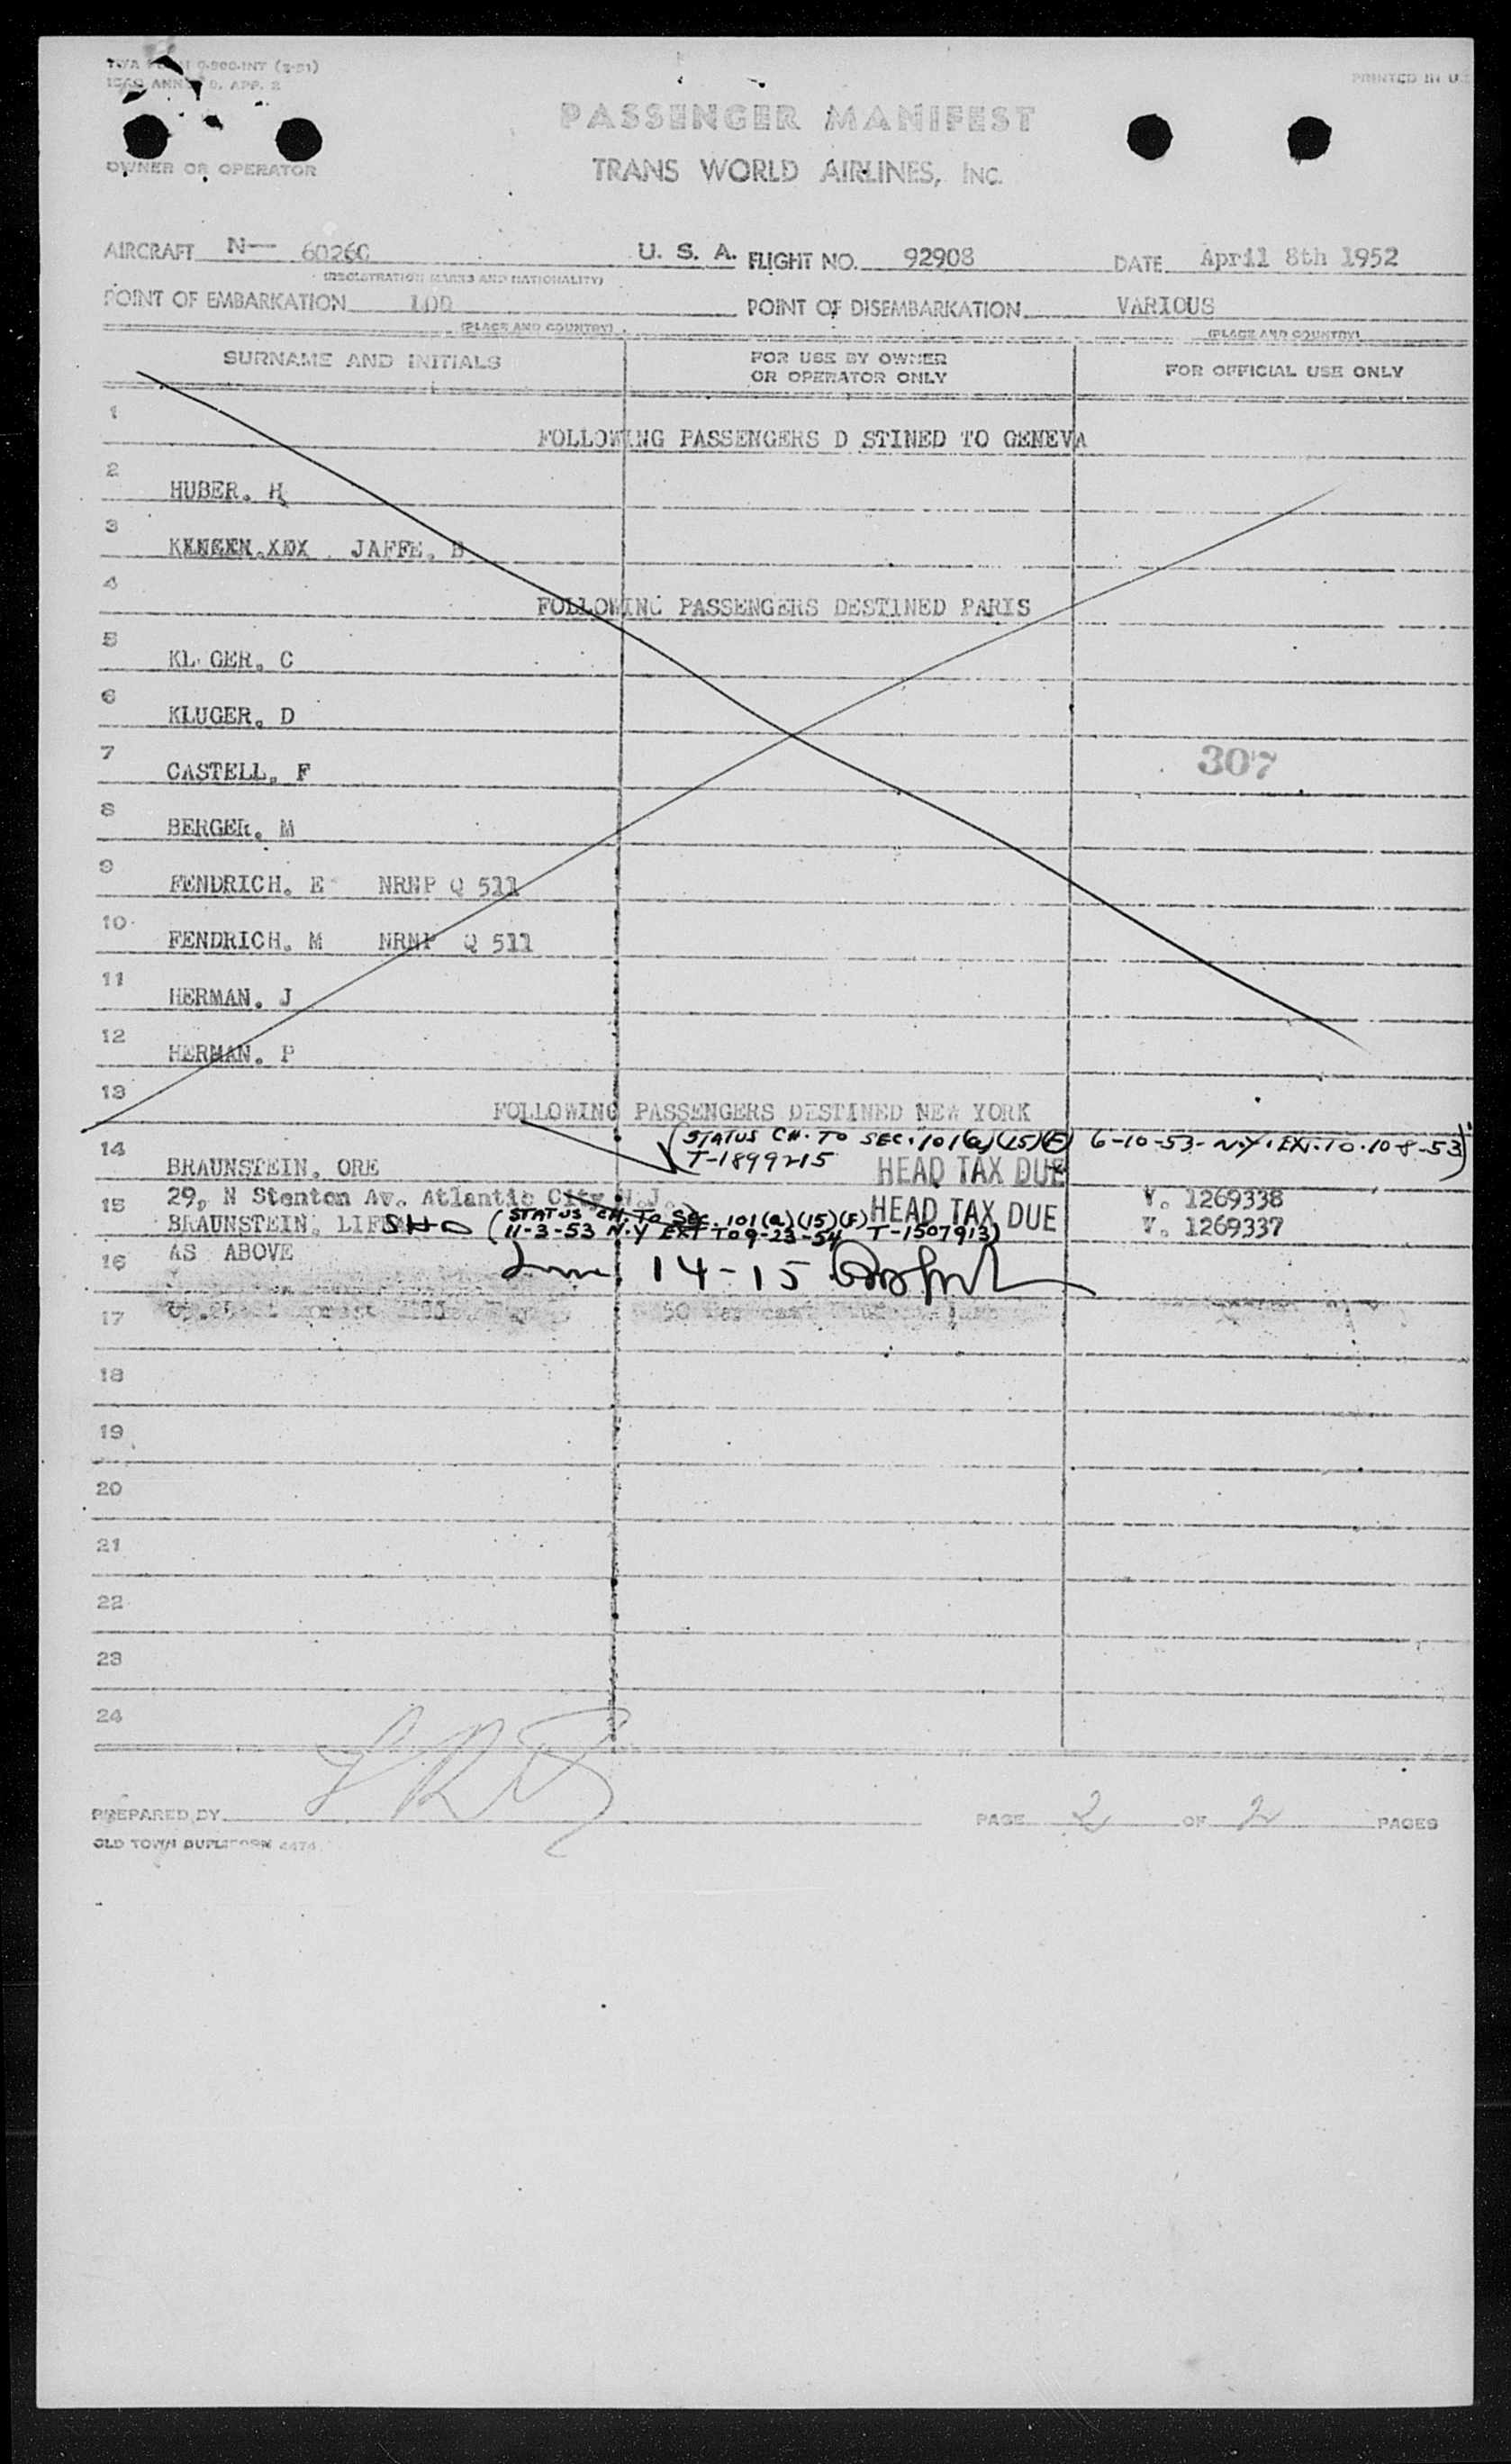 (3-51)
APP. 2
PRINTED IN U.
PASSENGER MANIFEST
OWNER OR OPERATOR
TRANS WORLD AIRLINES, INC.
AIRCRAFT N— 6026C U. S. A. FLIGHT NO. 92908 DATE April 8th 1952
(REGISTRATION MARKS AND NATIONALITY)
POINT OF EMBARKATION LOD POINT OF DISEMBARKATION VARIOUS
(PLACE AND COUNTRY) (PLACE AND COUNTRY)
SURNAME AND INITIALS FOR USE BY OWNER OR OPERATOR ONLY FOR OFFICIAL USE ONLY
1
FOLLOWING PASSENGERS D STINED TO GENEVA
2
HUBER. H
3
JAFFE. B
4
FOLLOWING PASSENGERS DESTINED PARIS
5
KL GER. C
6
KLUGER. D
7
CASTELL. F 307
8
BERGER. M
9
FENDRICH. E NRNP Q 511
10
FENDRICH. M NRNP Q 511
11
HERMAN. J
12
HERMAN. P
13
FOLLOWING PASSENGERS DESTINED NEW YORK
STATUS CH. TO SEC. 101(a)(15)(F) 6-10-53- N.Y. EX. TO. 10-8-53)
14 T-1899215
BRAUNSTEIN. ORE HEAD TAX DUE
29, N Stenton Av. Atlantic City N.J. V. 1269338
15 (STATUS CH. TO SEC. 101(a)(15)(F) HEAD TAX DUE
BRAUNSTEIN. V. 1269337
11-3-53 N.Y EXT TO 9-23-54 T-1507913)
AS ABOVE
16 14-15
17
18
19
20
21
22
23
24
PREPARED BY PAGE 2 OF 2 PAGES
OLD TOWN 4474